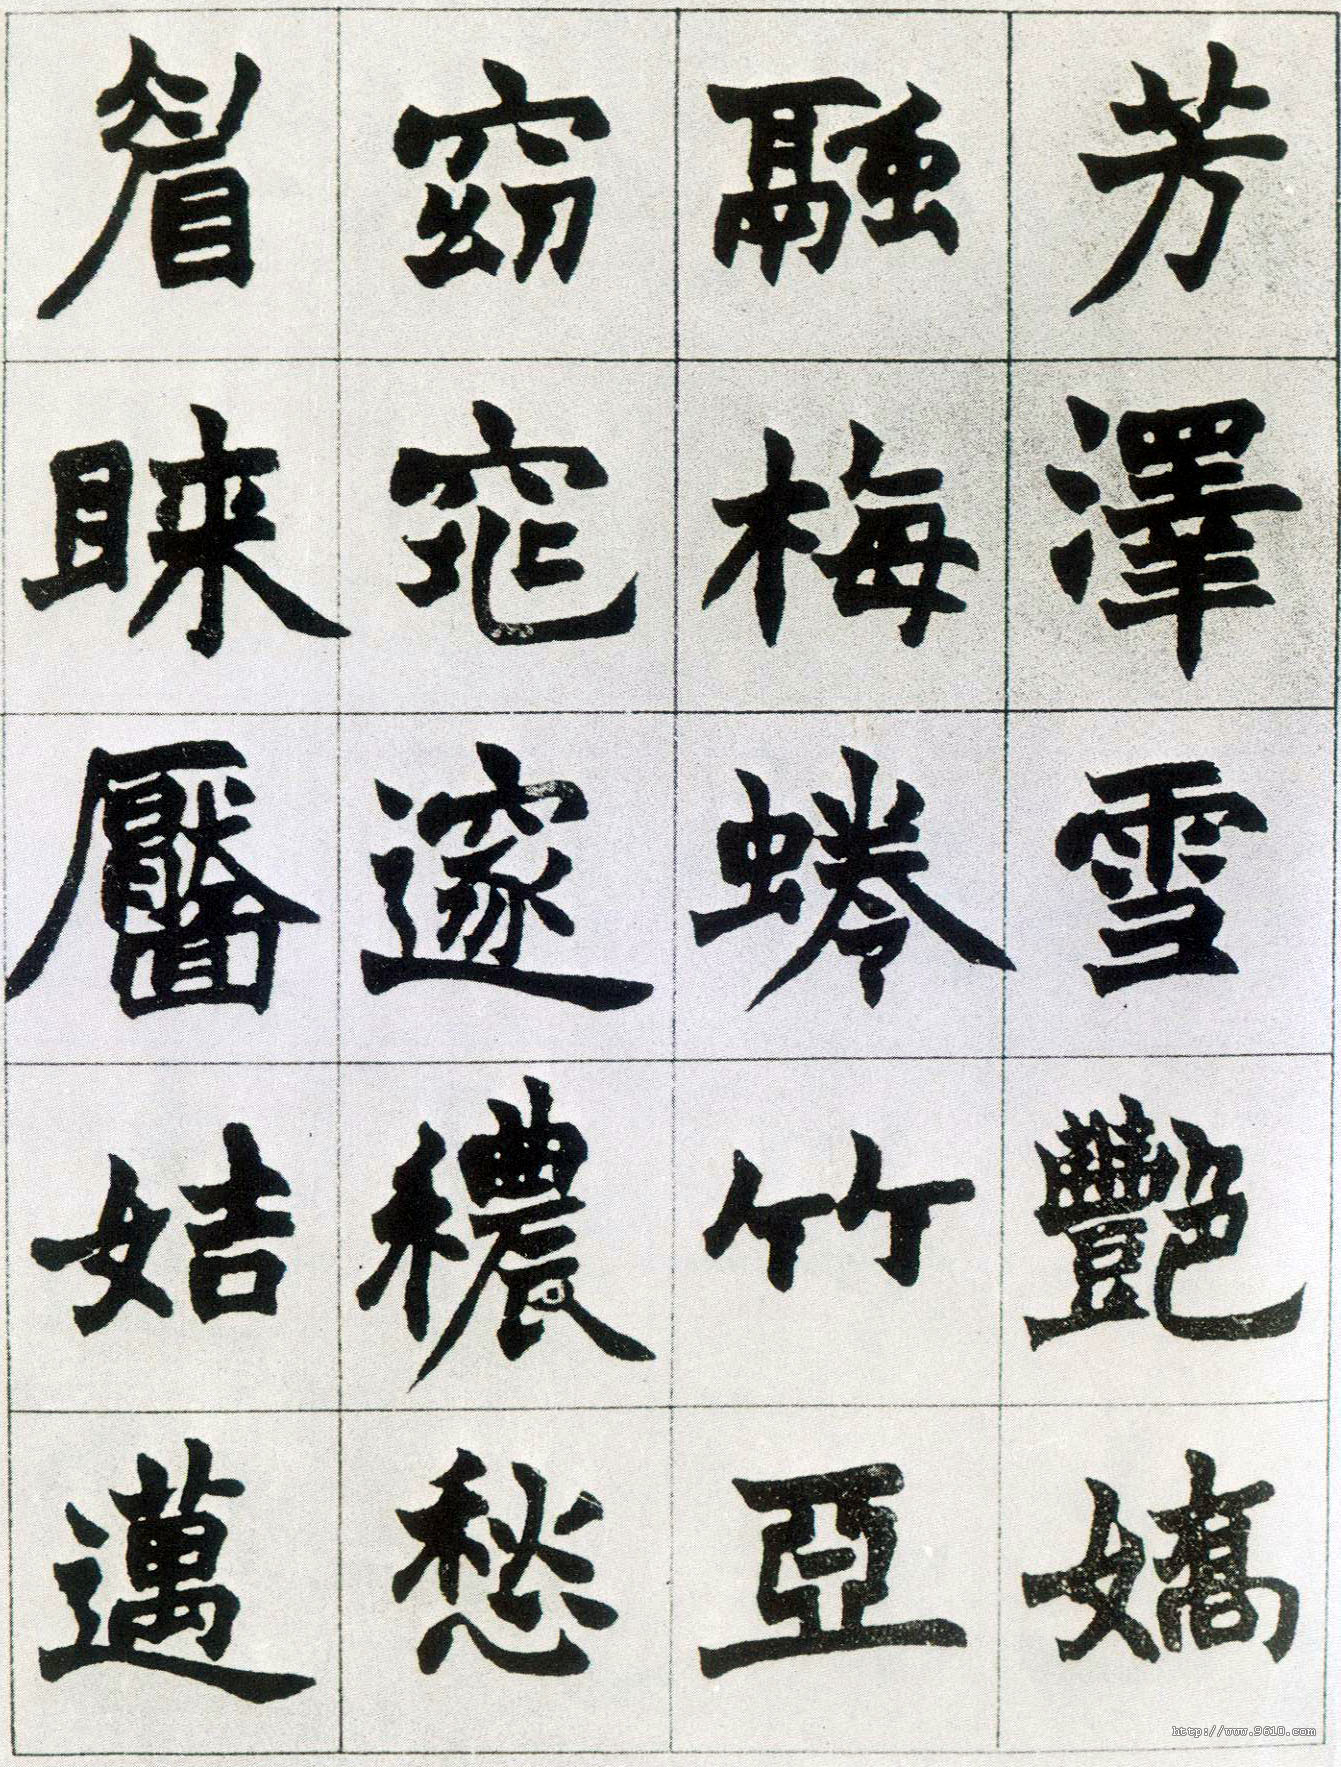 芳澤雪艷嬌
融梅蜷竹亞
窈窕邃穠愁
眉睞靨姞邁
http://www.9610.com